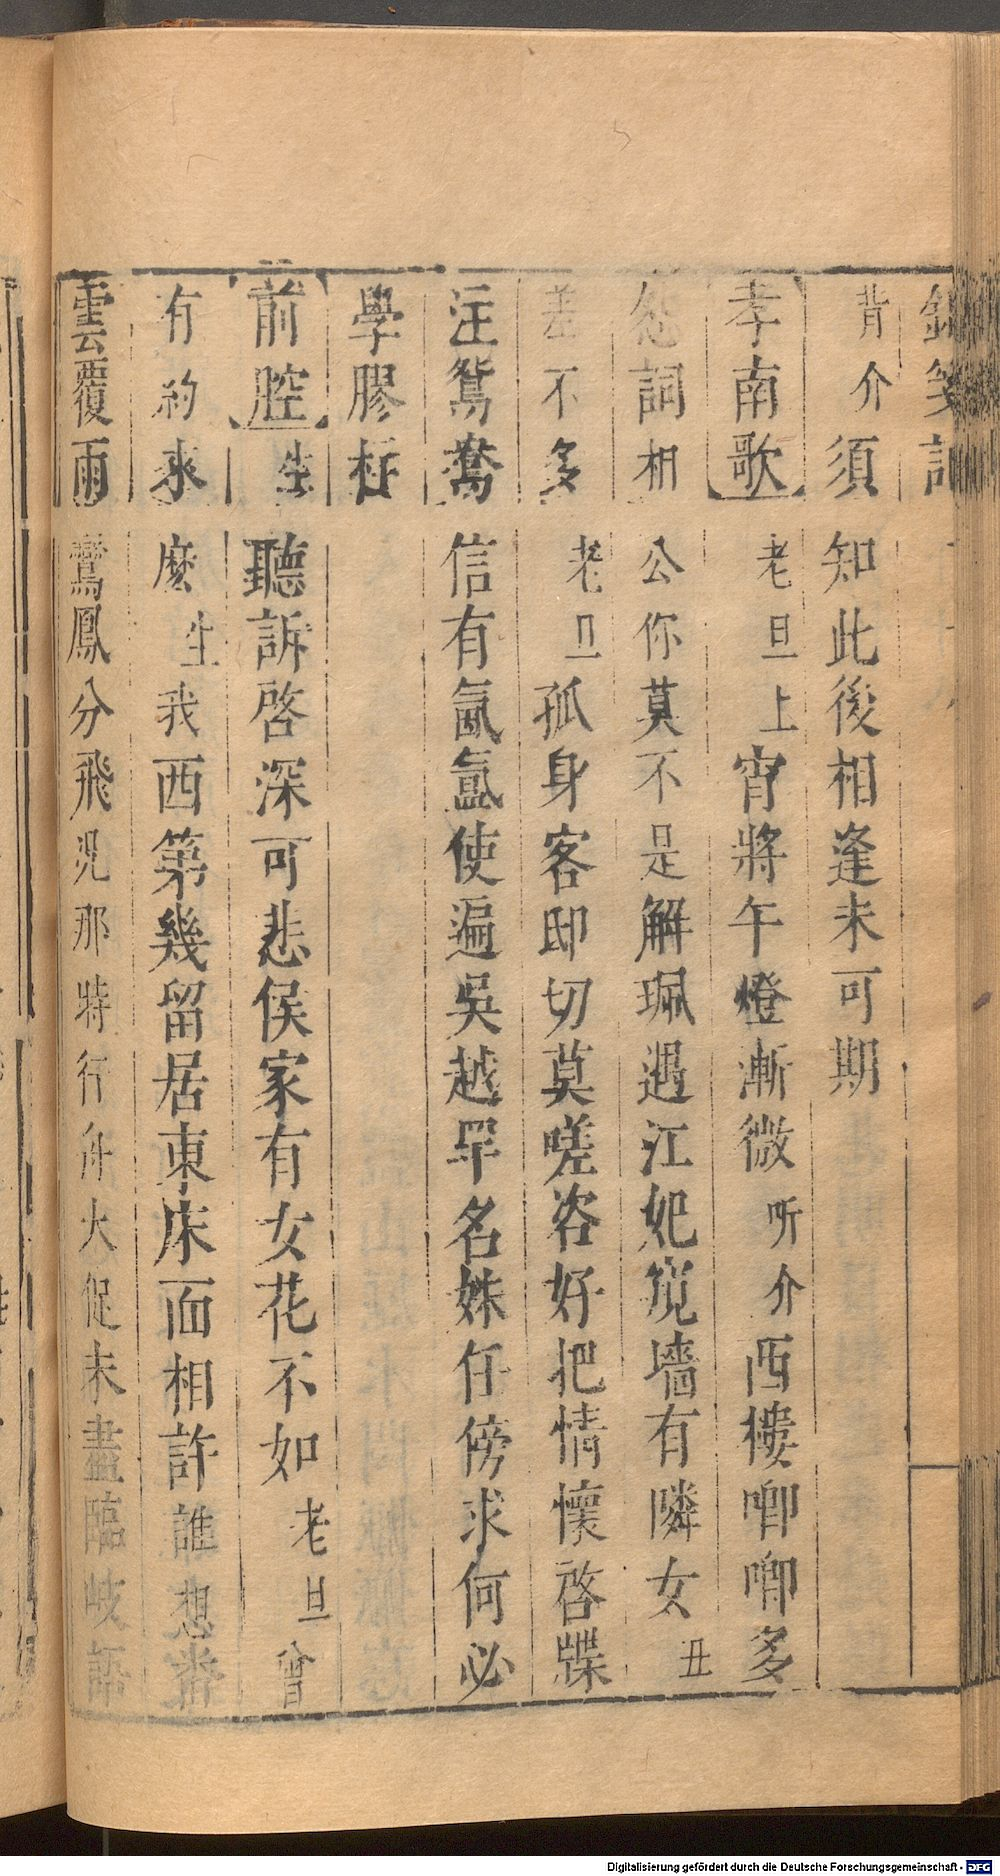 背介須知此後相逢未可期
孝南歌老旦上宵將午燈漸微听介西樓唧唧多
怨詞相公你莫不是解珮遇江妃窺墻有隣女丑
差不多老旦孤身客邸切莫嗟咨好把情懷啓牒
注鴛鴦信有氤氳使遍吳越罕名姝任傍求何必
學膠柱
前腔生聽訴啓深可悲侯家有女花不如老旦曾
有約來麽生我西第幾留居東床面相許誰想
雲覆雨鸞鳳分飛況那時行舟大促未盡臨岐語
Digitalisierung gefördert durch die Deutsche Forschungsgemeinschaft - DFG